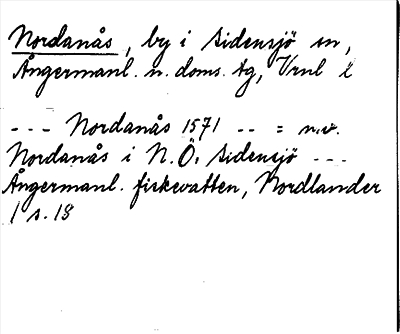 Nordanås, by i Sidensjö sn,
Ångermanl. n. doms. tg, Vrnl l
--- Nordanås 1571 -- = nuv.
Nordanås i N.Ö. Sidensjö ---
Ångermanl. fiskevatten, Nordlander
1 s. 18